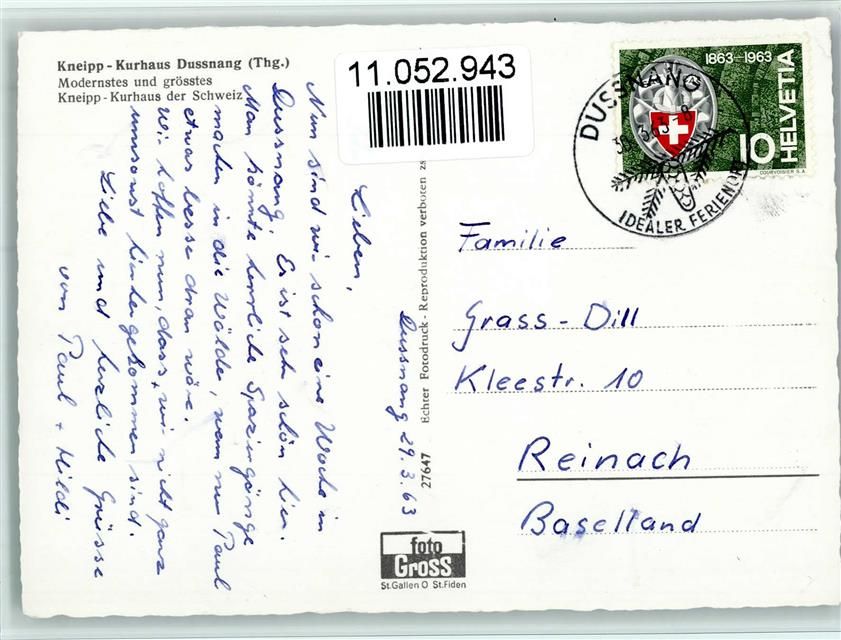 Kneipp - Kurhaus Dussnang (Thg.)
Modernstes und grösstes
Kneipp - Kurhaus der Schweiz
11.052.943
Dussnang 29.3.63
Lieben,
Nun sind wir schon eine Woche in
Dussnang. Es ist sehr schön hier.
Man könnte herrliche Spaziergänge
machen in die Wälder, wenn nur Paul
etwas besser dran wäre.
Wir hoffen nun, dass wir nicht ganz
umsonst hierher gekommen sind.
Liebe und herzliche Grüsse
von Paul + Hildi
27647 Echter Fotodruck - Reproduktion verboten
foto
Gross
St.Gallen O St.Fiden
DUSSNANG
IDEALER FERIENORT
1863-1963
HELVETIA
10
COURVOISIER S.A.
Familie
Grass - Dill
Kleestr. 10
Reinach
Baselland